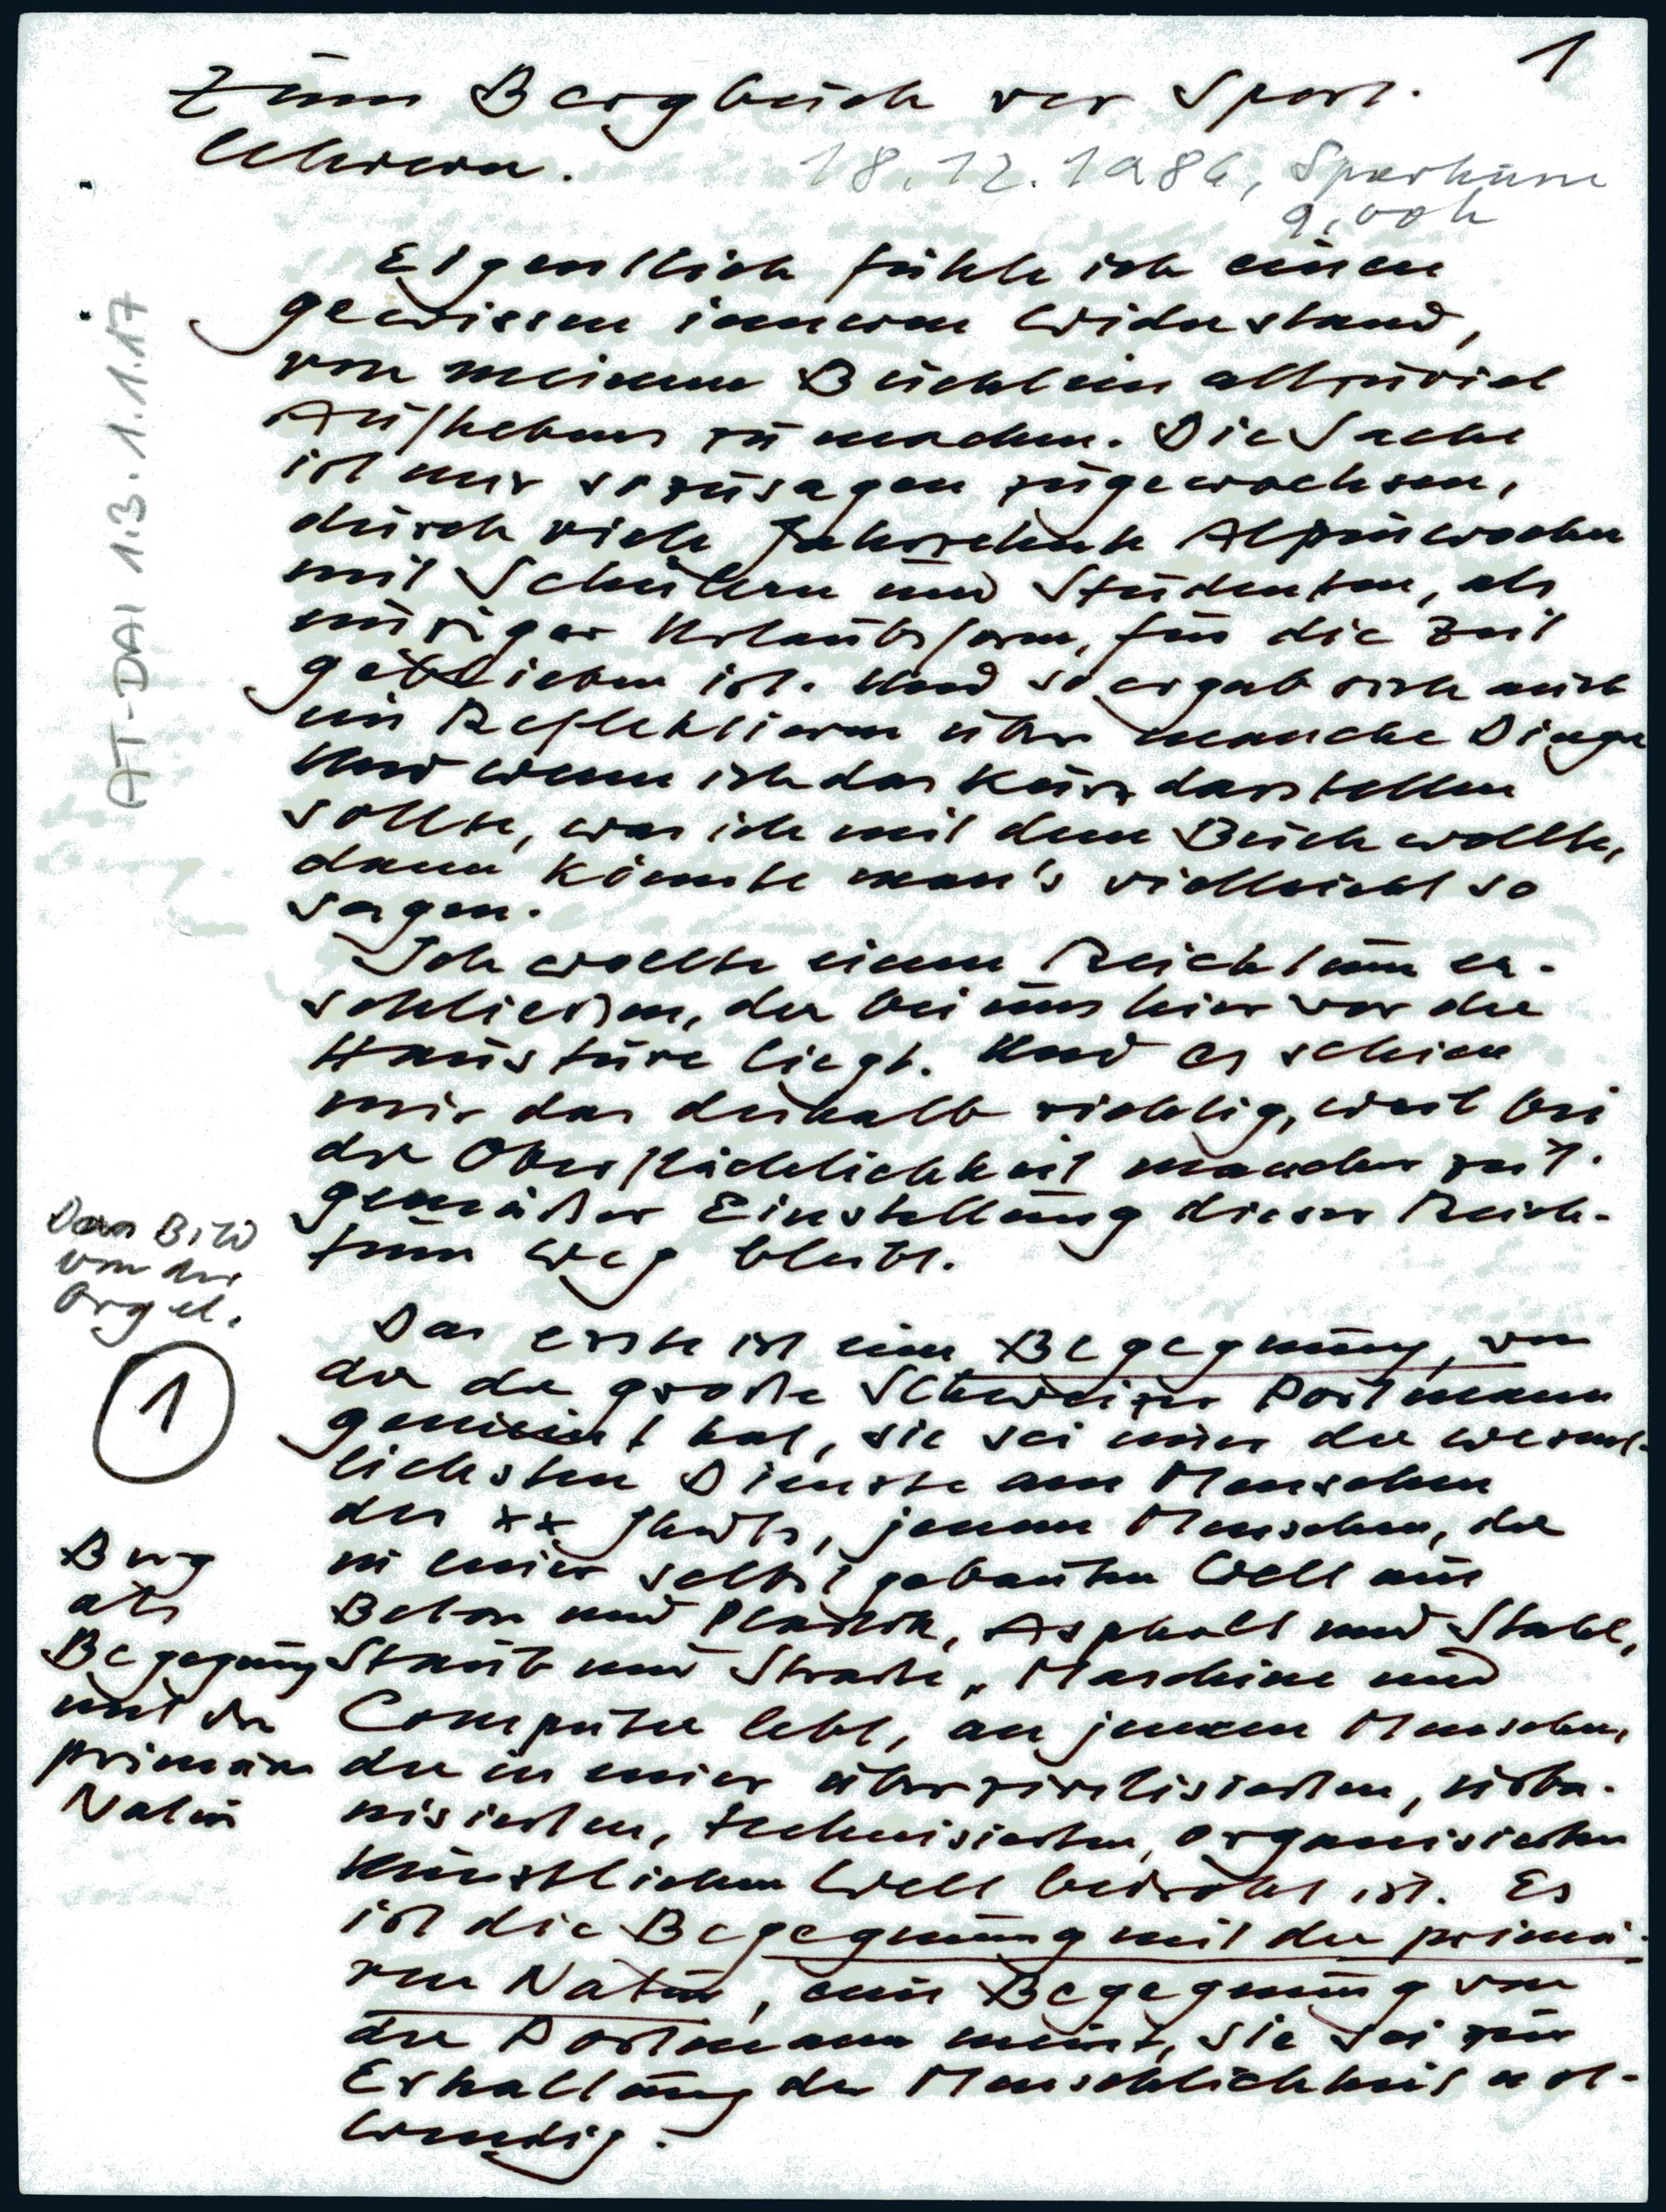 1
Zum Bergbuch vor Sport-
lehrern.
18.12.1986, Sportuni
9,00h
AT-DAI 1.3.1.1.17
Eigentlich fühle ich einen
gewissen inneren Widerstand,
von meinem Büchlein allzuviel
Aufhebens zu machen. Die Sache
ist mir sozusagen zugewachsen,
durch viele Jahrzehnte Alpinwochen
mit Schülern und Studenten, als
einziger Urlaubsform, für die Zeit
geblieben ist. Und so ergab sich auch
ein Reflektieren über manche Dinge
Und wenn ich das kurz darstellen
sollte, was ich mit dem Buch wollte,
dann könnte man's vielleicht so
sagen.
Ich wollte einen Reichtum er-
schließen, der bei uns hier vor der
Haustüre liegt. Und es schien
mir das deshalb wichtig, weil bei
der Oberflächlichkeit mancher zeit-
gemäßer Einstellung dieser Reich-
tum weg bleibt.
Das Bild
von der
Orgel.
1
Das erste ist eine Begegnung, von
der der große Schweizer Portmann
gemeint hat, sie sei einer der wesent-
lichsten Dienste am Menschen
des XX Jhdts, jenem Menschen, der
in einer selbst gebauten Welt aus
Beton und Plastik, Asphalt und Stahl,
Staub und Straße, Maschine und
Computer lebt, an jenem Menschen,
der in einer überzivilisierten, urba-
nisierten, technisierten, organisierten
künstlichen Welt bedroht ist. Es
ist die Begegnung mit der primä-
ren Natur, eine Begegnung von
der Portmann meint, sie sei zur
Erhaltung der Menschlichkeit not-
wendig.
Berg
als
Begegnung
mit der
primären
Natur